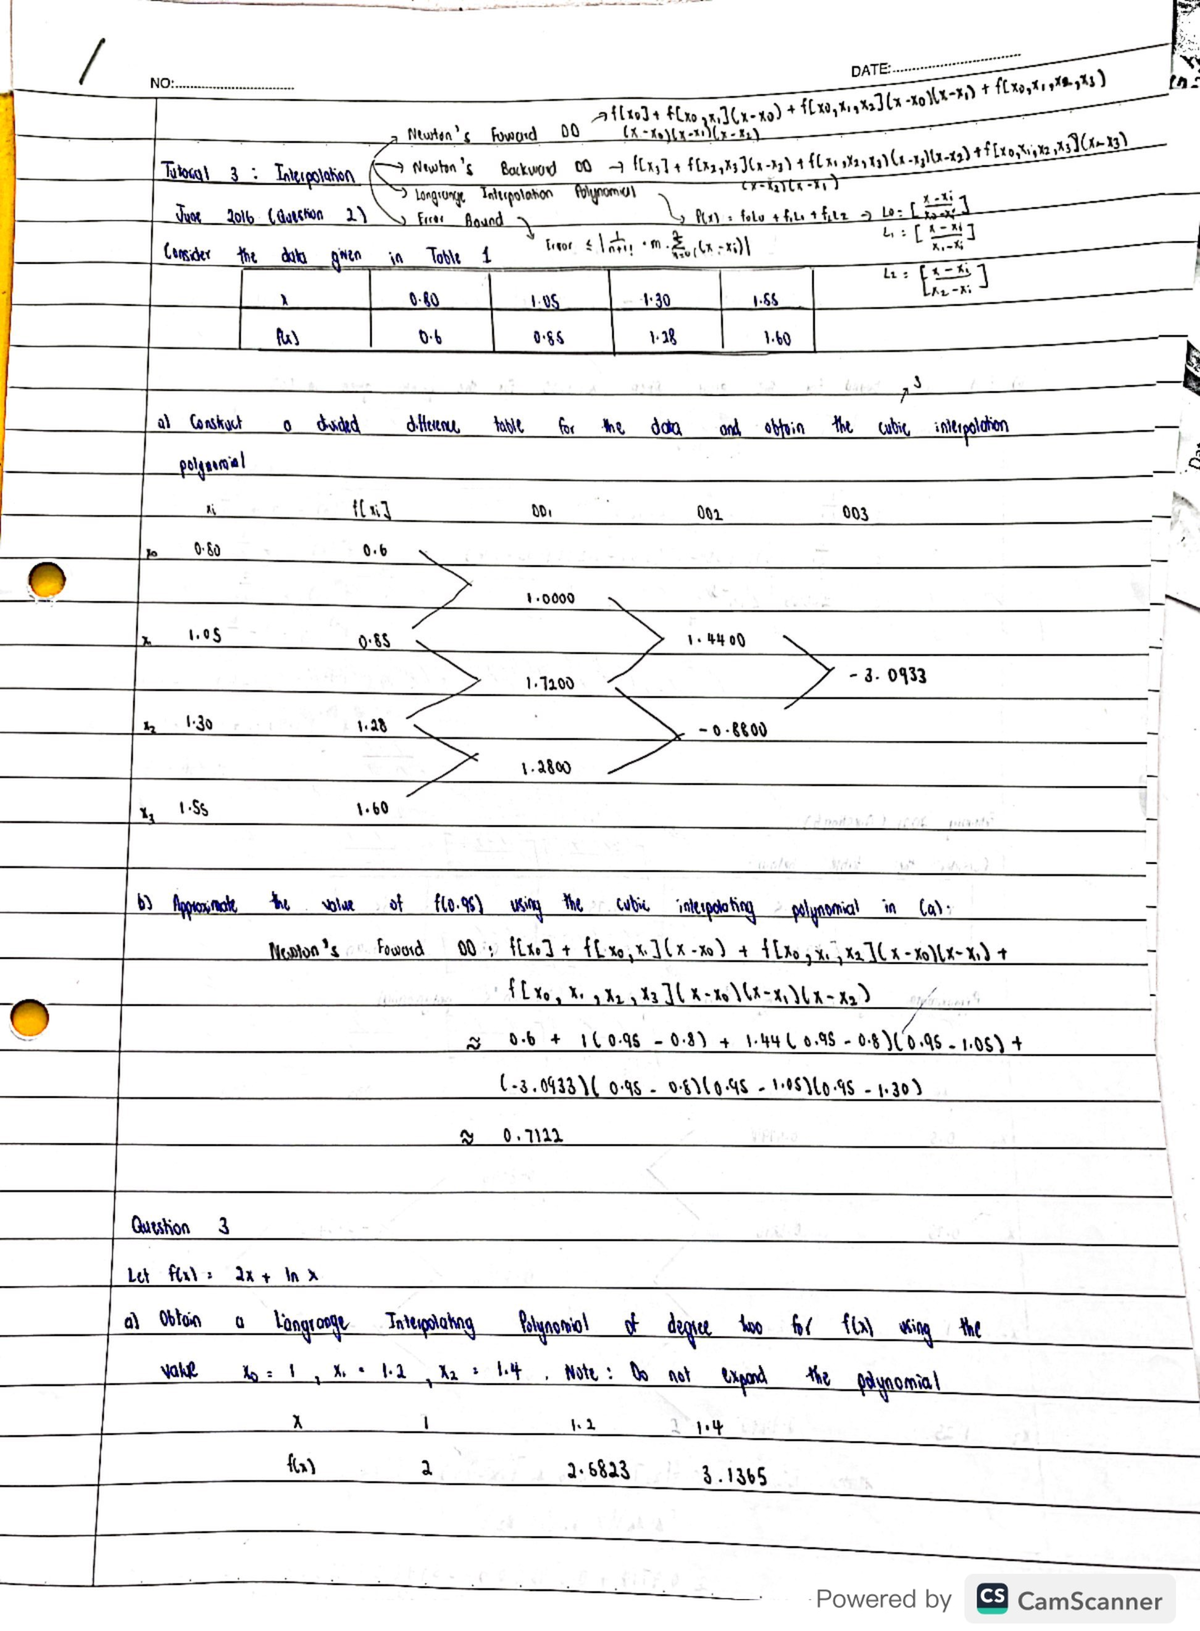 NO:
DATE:
→ Newton's Foward DD → f[x0] + f[x0,x1](x-x0) + f[x0,x1,x2](x-x0)(x-x1) + f[x0,x1,x2,x3]
(x-x0)(x-x1)(x-x2)
Tutorial 3 : Interpolation → Newton's Backward DD → f[x3] + f[x2,x3](x-x3) + f[x1,x2,x3](x-x3)(x-x2) + f[x0,x1,x2,x3](x-x3)
(x-x2)(x-x1)
→ Langrange Interpolation Polynomial → P(x) = f0L0 + f1L1 + f2L2 → L0 = [x-xi / x0-xi]
June 2016 (Question 2) → Error Bound
L1 = [x-xi / x1-xi]
Error ≤ | 1/n+1! · m · (x-xi)|
Consider the data given in Table 1
L2 = [x-xi / x2-xi]
x 0.80 1.05 1.30 1.55
f(x) 0.6 0.85 1.28 1.60
3
a) Construct a divided difference table for the data and obtain the cubic interpolation
polynomial
xi f[xi] DD1 DD2 DD3
x0 0.80 0.6
1.0000
x1 1.05 0.85 1.4400
1.7200 -3.0933
x2 1.30 1.28 -0.8800
1.2800
x3 1.55 1.60
b) Approximate the value of f(0.95) using the cubic interpolating polynomial in (a).
Newton's Foward DD : f[x0] + f[x0,x1](x-x0) + f[x0,x1,x2](x-x0)(x-x1) +
f[x0,x1,x2,x3](x-x0)(x-x1)(x-x2)
≈ 0.6 + 1(0.95 - 0.8) + 1.44(0.95 - 0.8)(0.95 - 1.05) +
(-3.0933)(0.95 - 0.8)(0.95 - 1.05)(0.95 - 1.30)
≈ 0.7122
Question 3
Let f(x) = 2x + ln x
a) Obtain a Langrange Interpolating Polynomial of degree two for f(x) using the
value x0 = 1 , x1 = 1.2 , x2 = 1.4 . Note : Do not expand the polynomial
x 1 1.2 1.4
f(x) 2 2.5823 3.1365
Powered by CS CamScanner